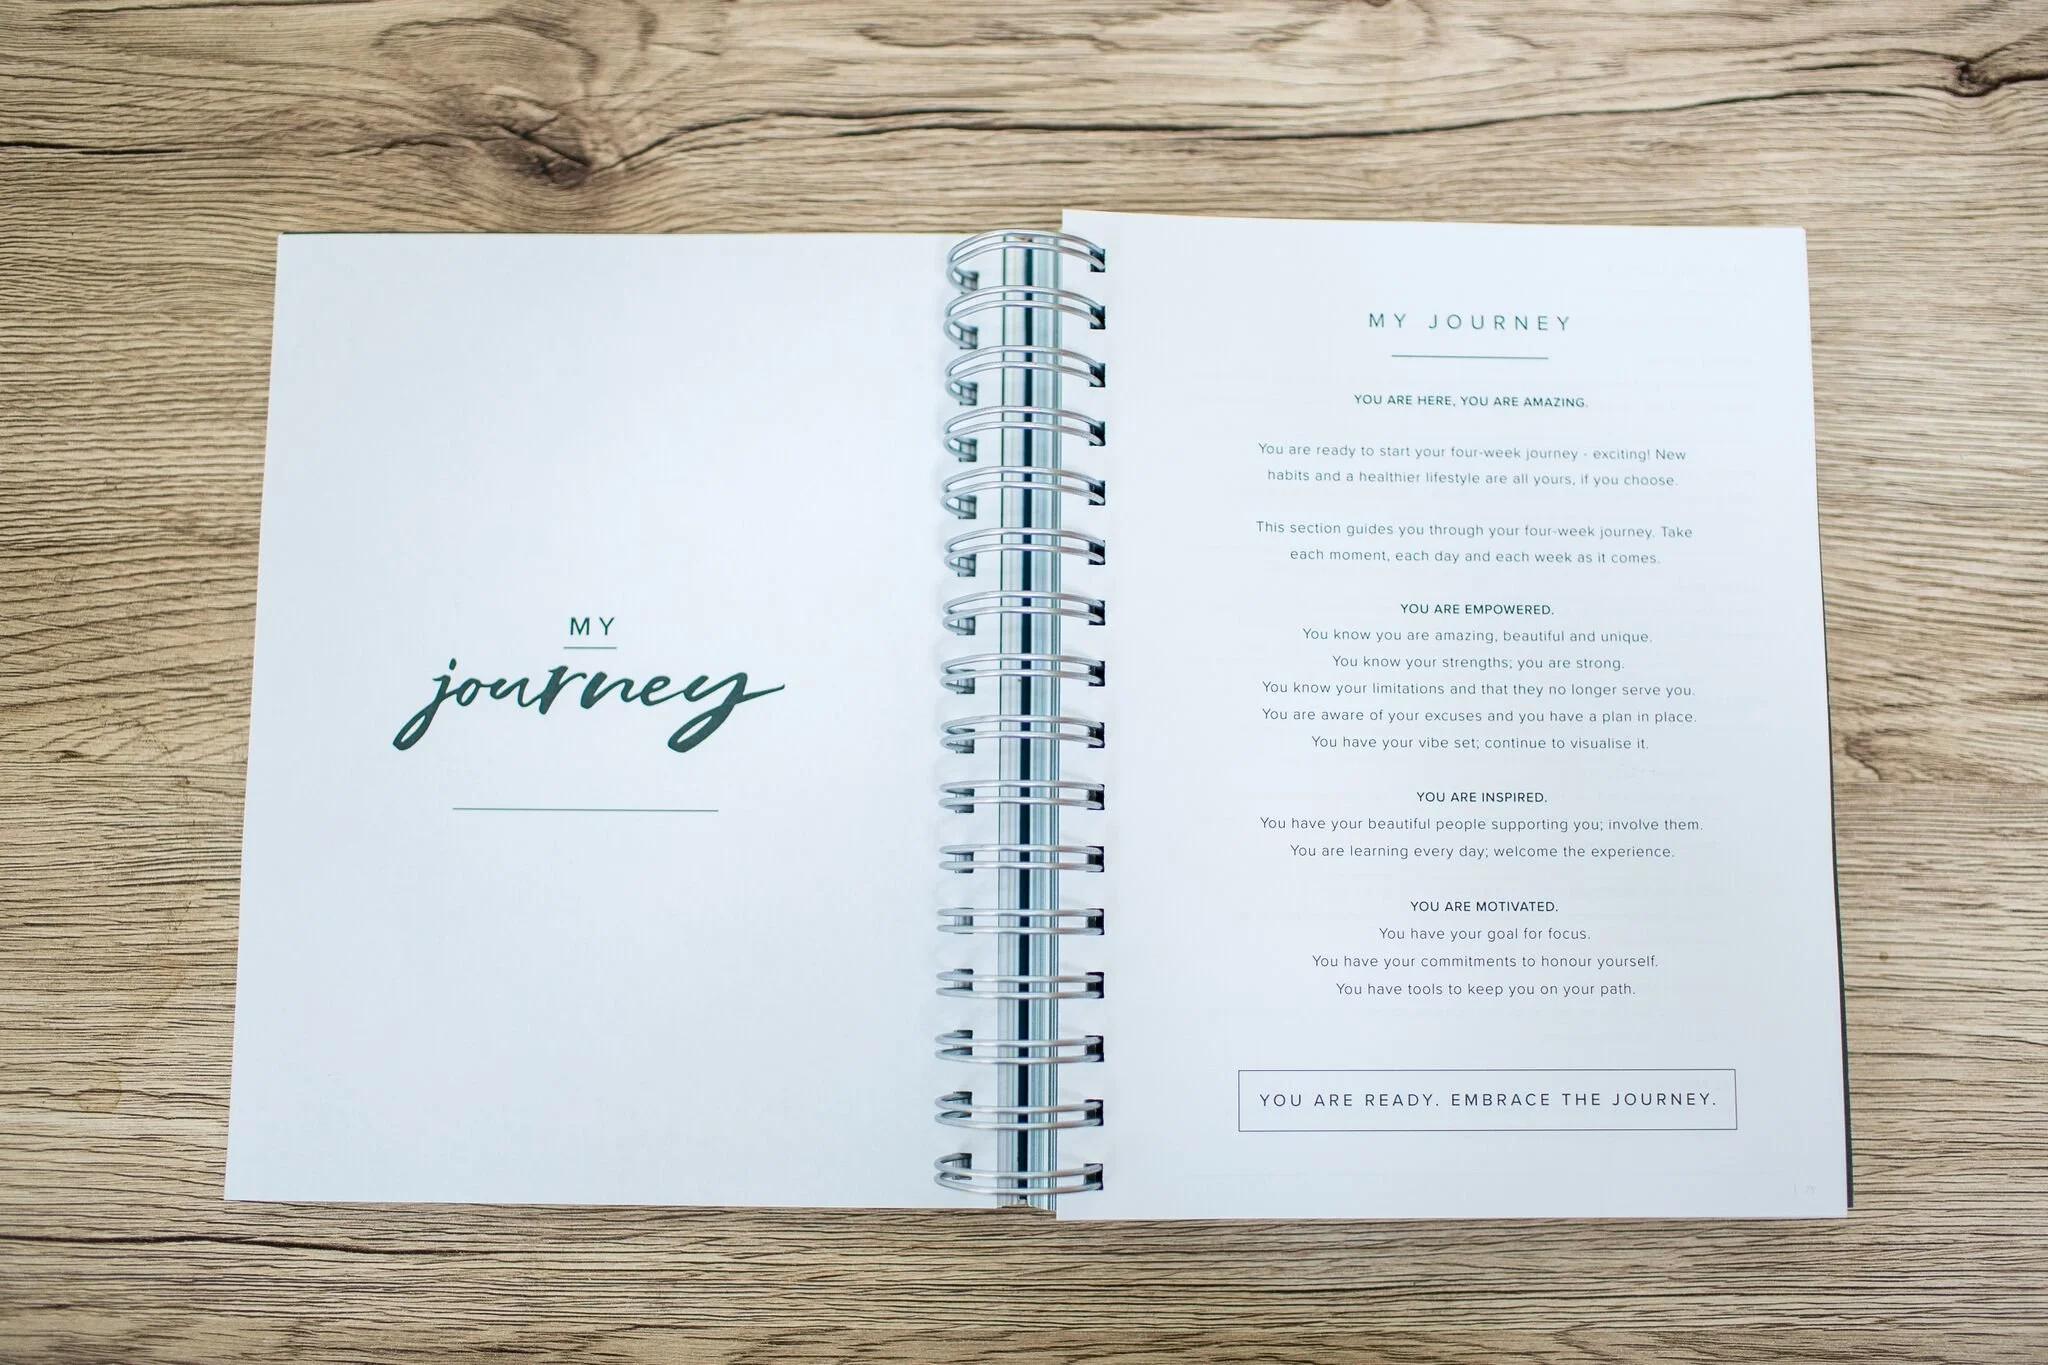 MY
journey
MY JOURNEY
YOU ARE HERE, YOU ARE AMAZING.
You are ready to start your four-week journey - exciting! New
habits and a healthier lifestyle are all yours, if you choose.
This section guides you through your four-week journey. Take
each moment, each day and each week as it comes.
YOU ARE EMPOWERED.
You know you are amazing, beautiful and unique.
You know your strengths; you are strong.
You know your limitations and that they no longer serve you.
You are aware of your excuses and you have a plan in place.
You have your vibe set; continue to visualise it.
YOU ARE INSPIRED.
You have your beautiful people supporting you; involve them.
You are learning every day; welcome the experience.
YOU ARE MOTIVATED.
You have your goal for focus.
You have your commitments to honour yourself.
You have tools to keep you on your path.
YOU ARE READY. EMBRACE THE JOURNEY.